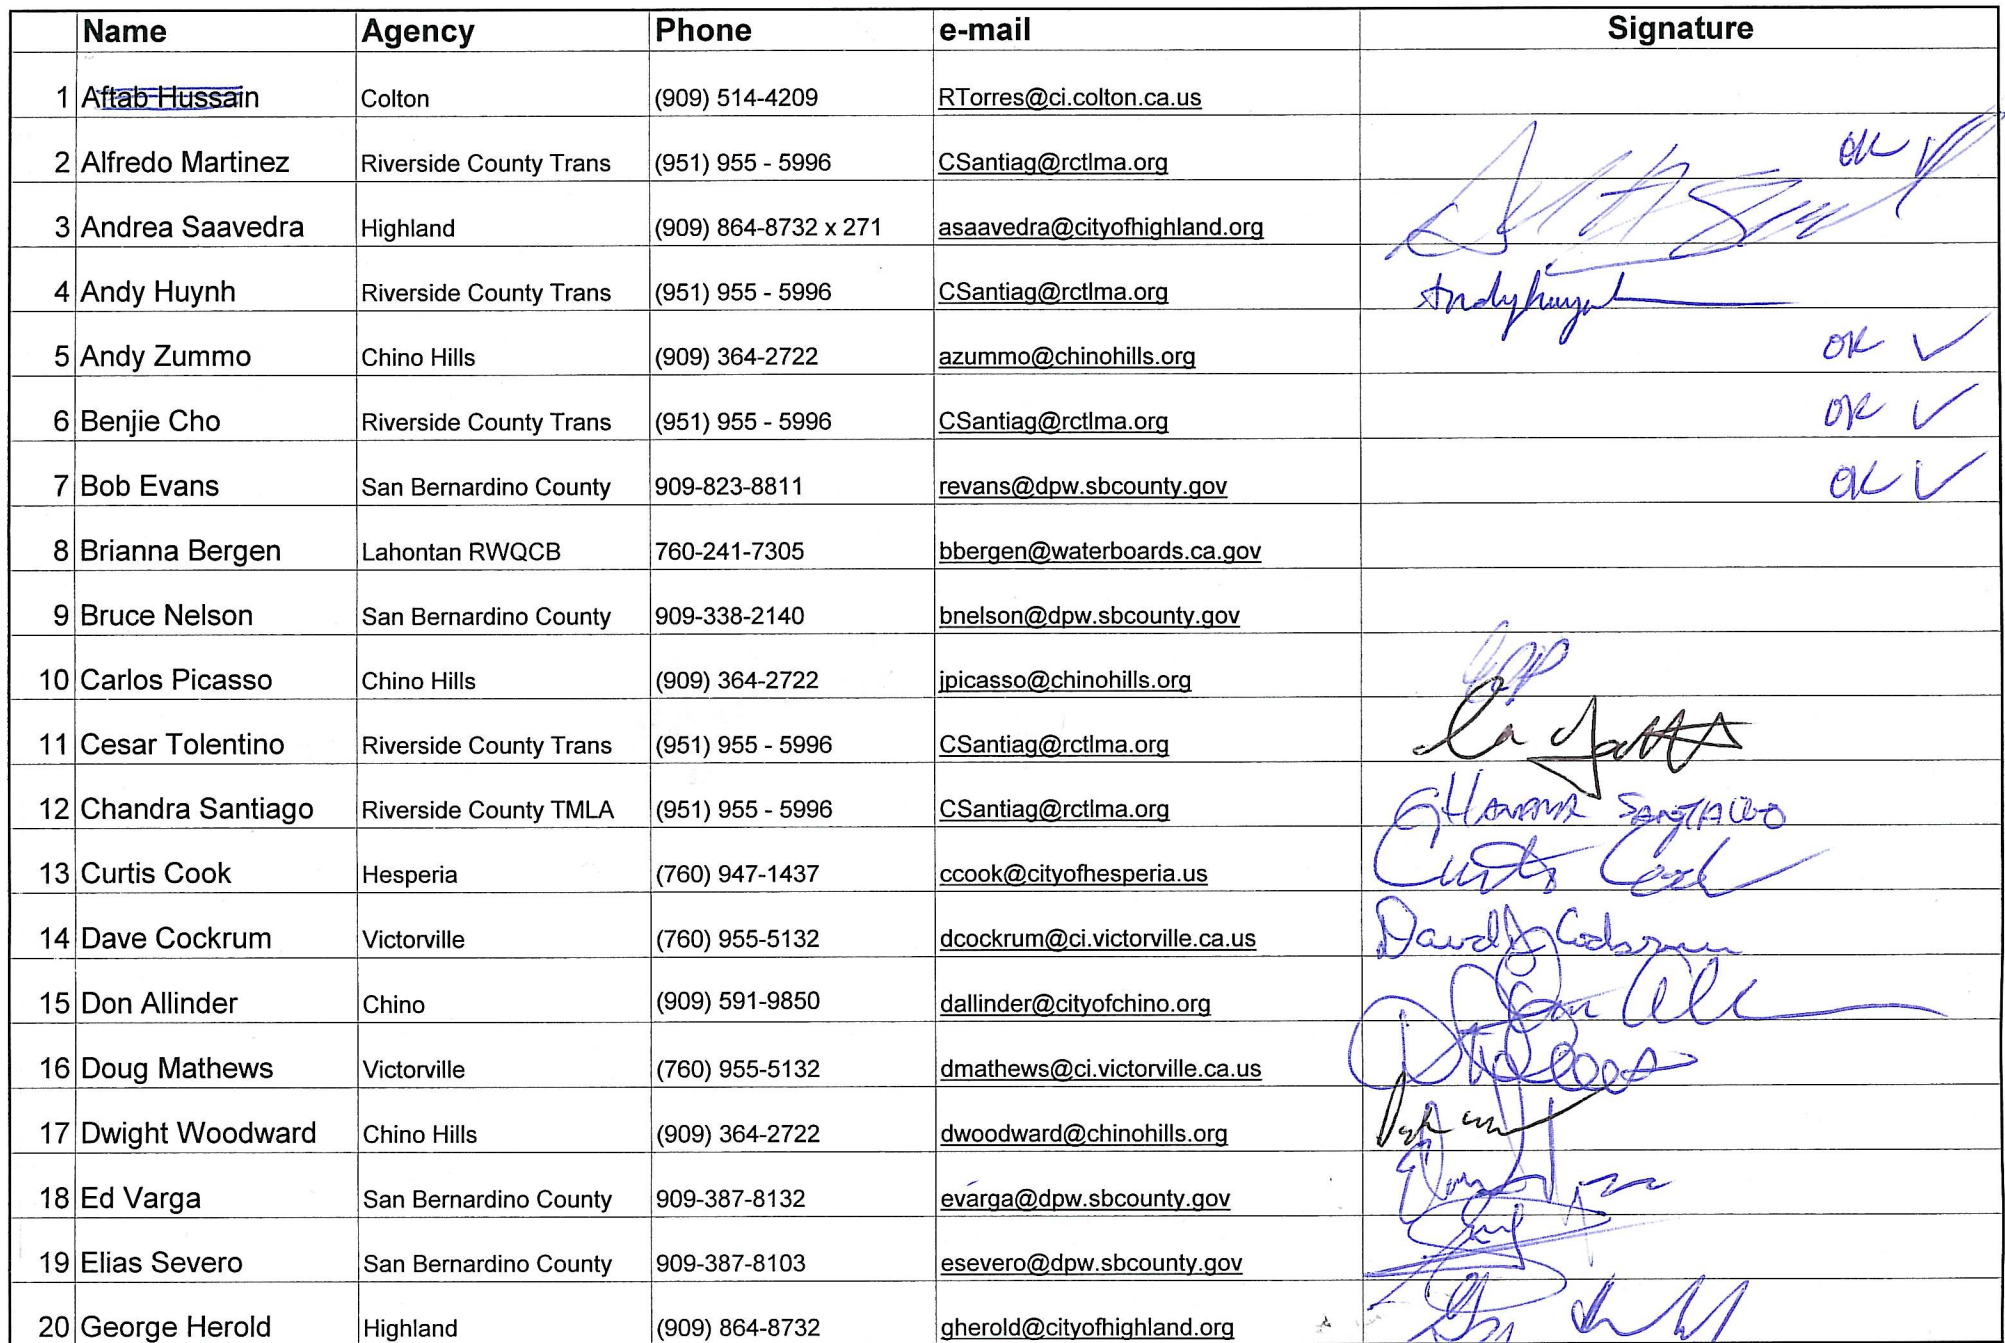 Name Agency Phone e-mail Signature
1 Aftab Hussain Colton (909) 514-4209 RTorres@ci.colton.ca.us
2 Alfredo Martinez Riverside County Trans (951) 955 - 5996 CSantiag@rctlma.org OK ✓
3 Andrea Saavedra Highland (909) 864-8732 x 271 asaavedra@cityofhighland.org
4 Andy Huynh Riverside County Trans (951) 955 - 5996 CSantiag@rctlma.org Andy Huynh
5 Andy Zummo Chino Hills (909) 364-2722 azummo@chinohills.org OK ✓
6 Benjie Cho Riverside County Trans (951) 955 - 5996 CSantiag@rctlma.org OK ✓
7 Bob Evans San Bernardino County 909-823-8811 revans@dpw.sbcounty.gov OK ✓
8 Brianna Bergen Lahontan RWQCB 760-241-7305 bbergen@waterboards.ca.gov
9 Bruce Nelson San Bernardino County 909-338-2140 bnelson@dpw.sbcounty.gov
10 Carlos Picasso Chino Hills (909) 364-2722 jpicasso@chinohills.org
11 Cesar Tolentino Riverside County Trans (951) 955 - 5996 CSantiag@rctlma.org
12 Chandra Santiago Riverside County TMLA (951) 955 - 5996 CSantiag@rctlma.org CHANDRA SANTIAGO
13 Curtis Cook Hesperia (760) 947-1437 ccook@cityofhesperia.us Curtis Cook
14 Dave Cockrum Victorville (760) 955-5132 dcockrum@ci.victorville.ca.us David J Cockrum
15 Don Allinder Chino (909) 591-9850 dallinder@cityofchino.org
16 Doug Mathews Victorville (760) 955-5132 dmathews@ci.victorville.ca.us
17 Dwight Woodward Chino Hills (909) 364-2722 dwoodward@chinohills.org
18 Ed Varga San Bernardino County 909-387-8132 evarga@dpw.sbcounty.gov
19 Elias Severo San Bernardino County 909-387-8103 esevero@dpw.sbcounty.gov
20 George Herold Highland (909) 864-8732 gherold@cityofhighland.org